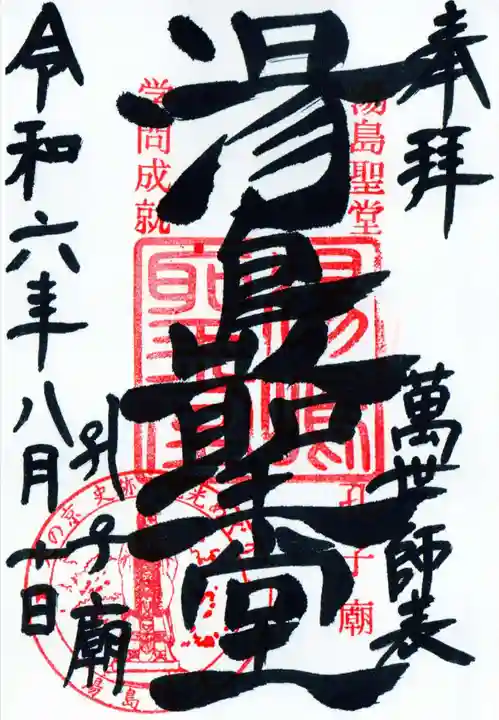 奉拝
萬世師表
湯島聖堂
孔子廟
湯島聖堂
学問成就
孔子廟
令和六年八月十日